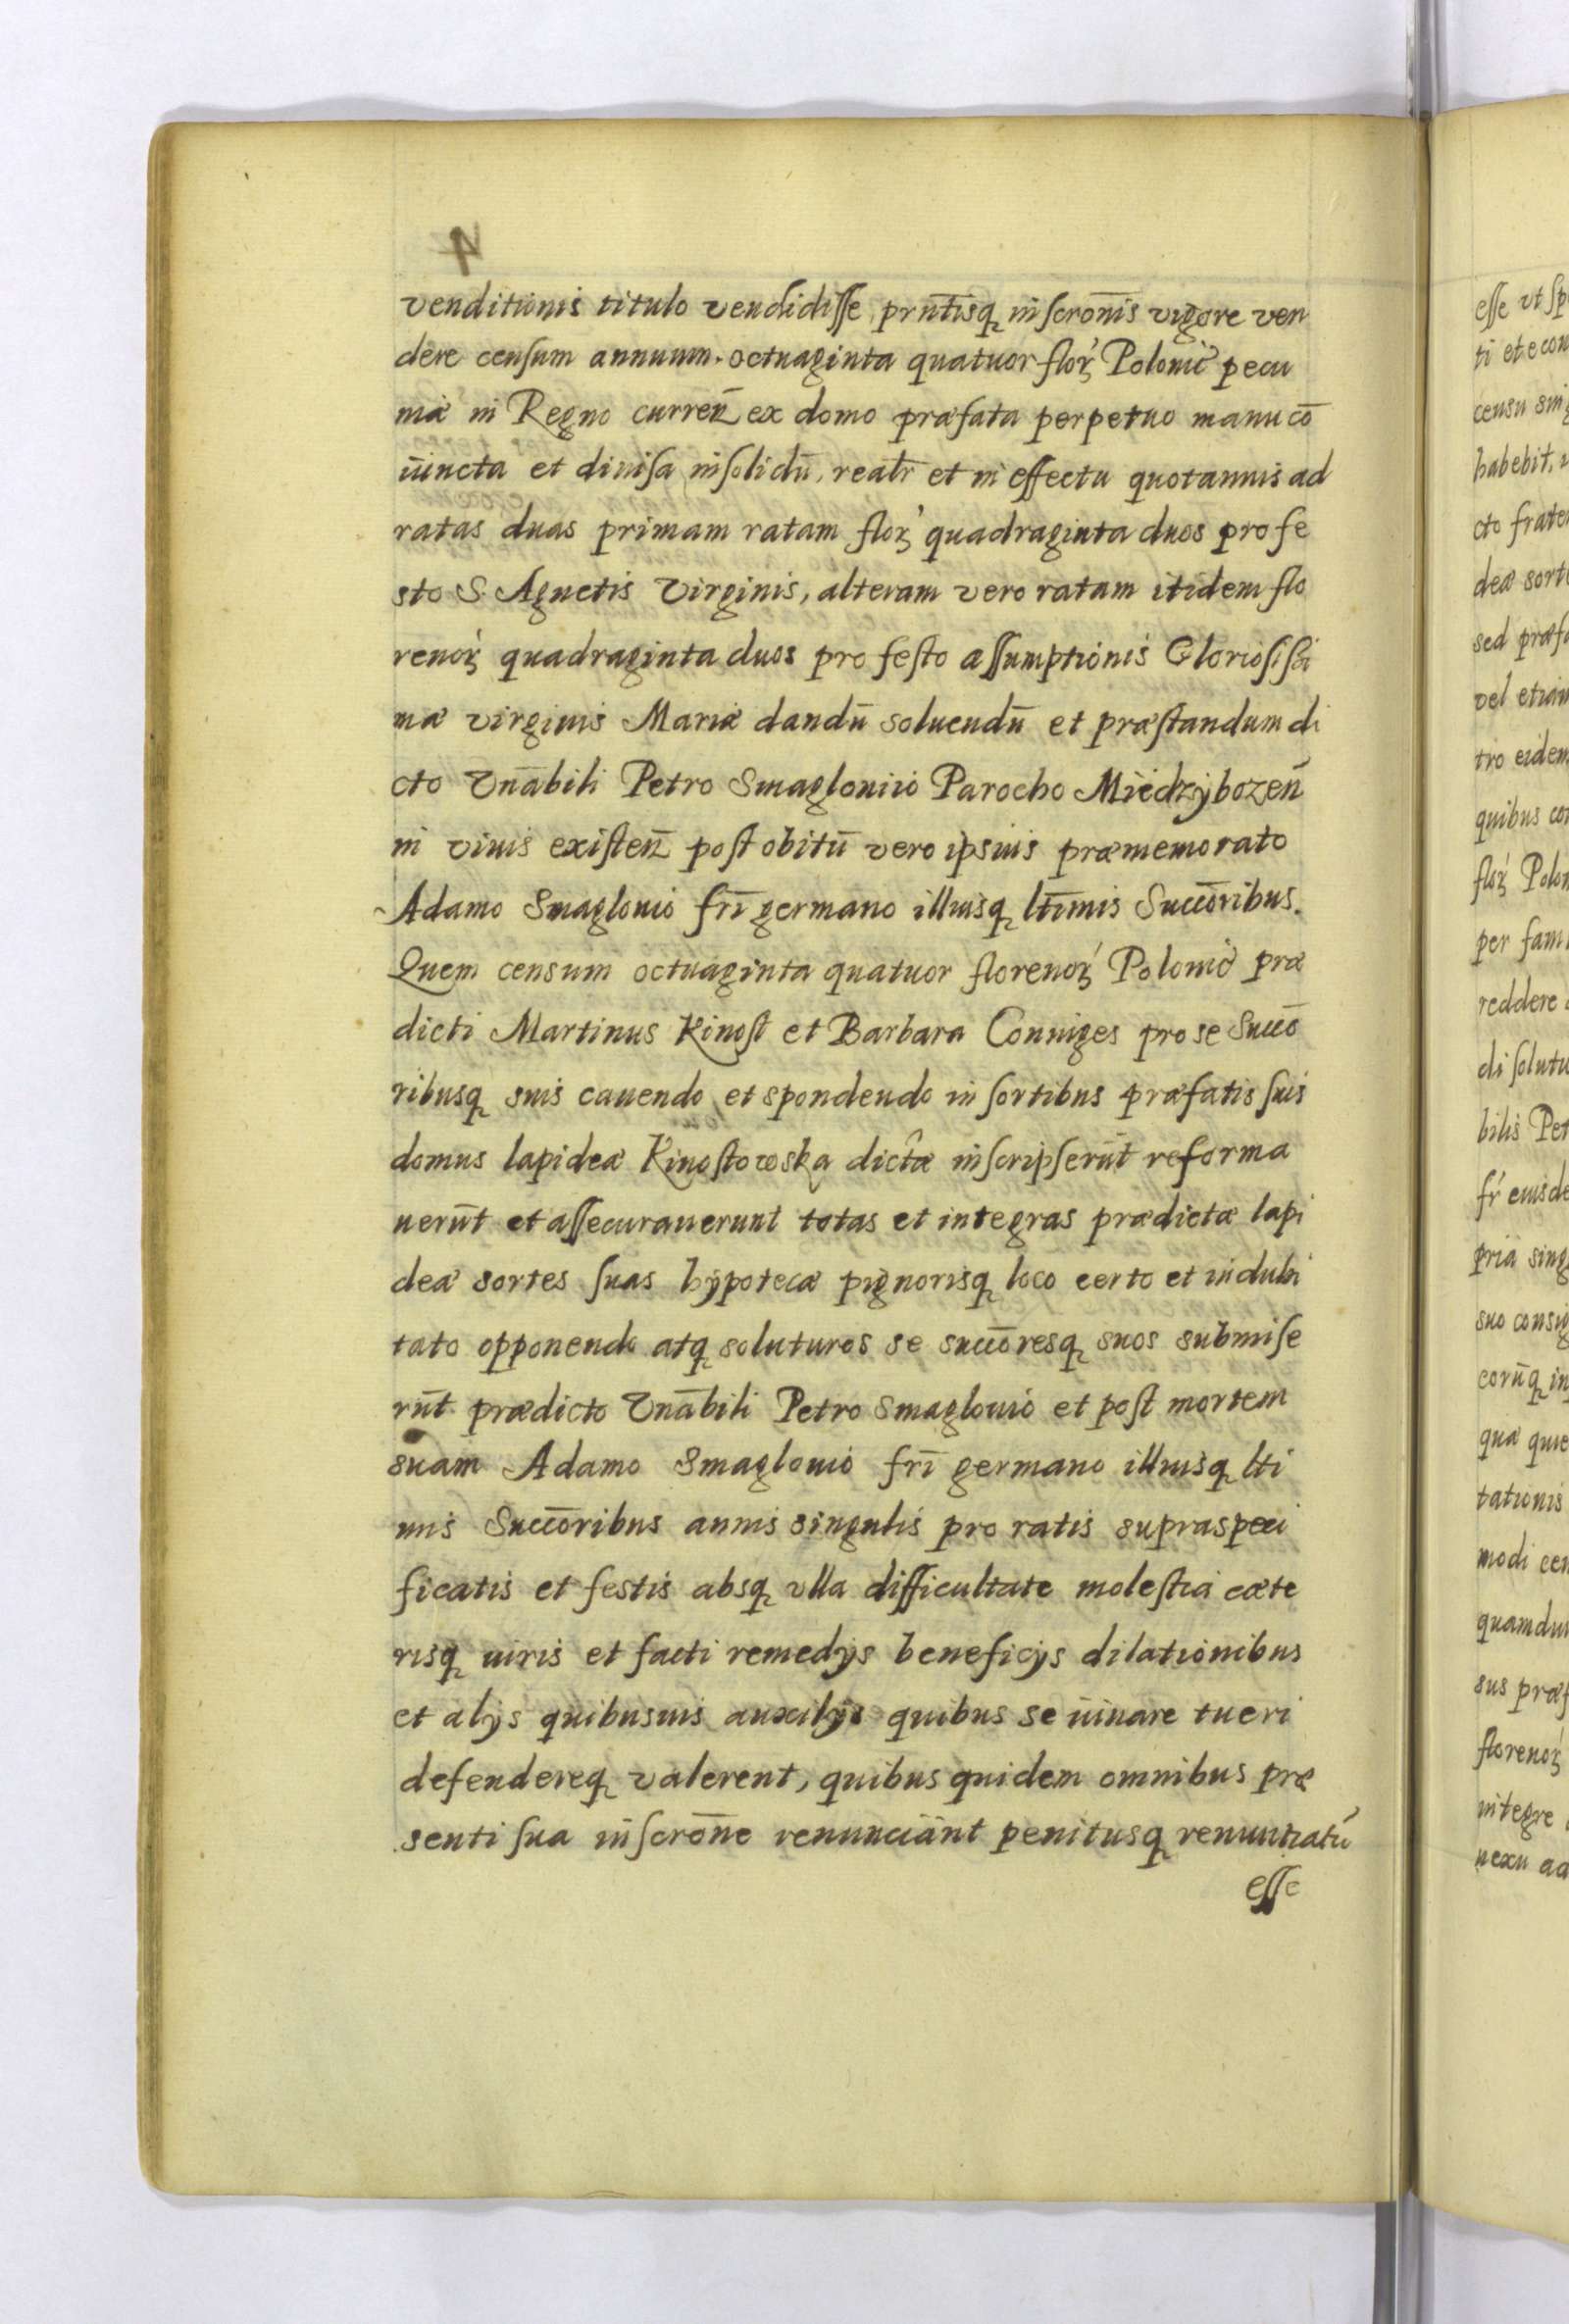 4
venditionis titulo vendidisse, prn̄tisq inscron̄is vigore ven
dere censum annuum octuaginta quatuor flor Polonic̄ pecu
niæ in Regno curren̄ ex domo præfata perpetuo manu cō
iuncta et diuisa insolidū, realr̄ et in effectu quotannis ad
ratas duas primam ratam flor quadraginta duos pro fe
sto S. Agnetis Virginis, alteram vero ratam itidem flo
renor quadraginta duos pro festo assumptionis Gloriosissi
mæ virginis Mariæ dandū soluendū et præstandum di
cto Vnābili Petro Smaglouio Parocho Miedzybozen̄
in viuis existen̄ post obitū vero ipsius præmemorato
Adamo Smaglouio fr̄i germano illiusq lt̄imis Succōribus.
Quem censum octuaginta quatuor florenor Polonic̄ præ
dicti Martinus Kinost et Barbara Coniuges pro se Succō
ribusq suis cauendo et spondendo in sortibus præfatis suis
domus lapideæ Kinostowska dictæ inscripserūt reforma
uerūt et assecurauerunt totas et integras prædictæ lapi
deæ sortes suas hÿpotecæ pignorisq loco certo et indubi
tato opponendo atq soluturos se succōresq suos submise
rūt prædicto Vnābili Petro Smaglouio et post mortem
suam Adamo Smaglouio fr̄i germano illiusq lti
mis Succōribus annis singulis pro ratis supraspeci
ficatis et festis absq vlla difficultate molestia cæte
risq iuris et facti remedÿs beneficÿs dilationibus
et alÿs quibusuis auxilÿs quibus se iuuare tueri
defendereq valerent, quibus quidem omnibus præ
senti sua inscrōne renunciant penitusq renuntiatū
esse
esse vt sp
ti et e con
censu sing
habebit,
cto frater
deæ sort
sed præf
vel etiam
tro eidem
quibus co
flor Polon
per fam
reddere
di solutu
bilis Pet
fr̄ euisde
pria sing
suo consig
corūq in
qua quie
tationis
modi cen
quamdiu
sus præf
florenor
integre
nexu ad